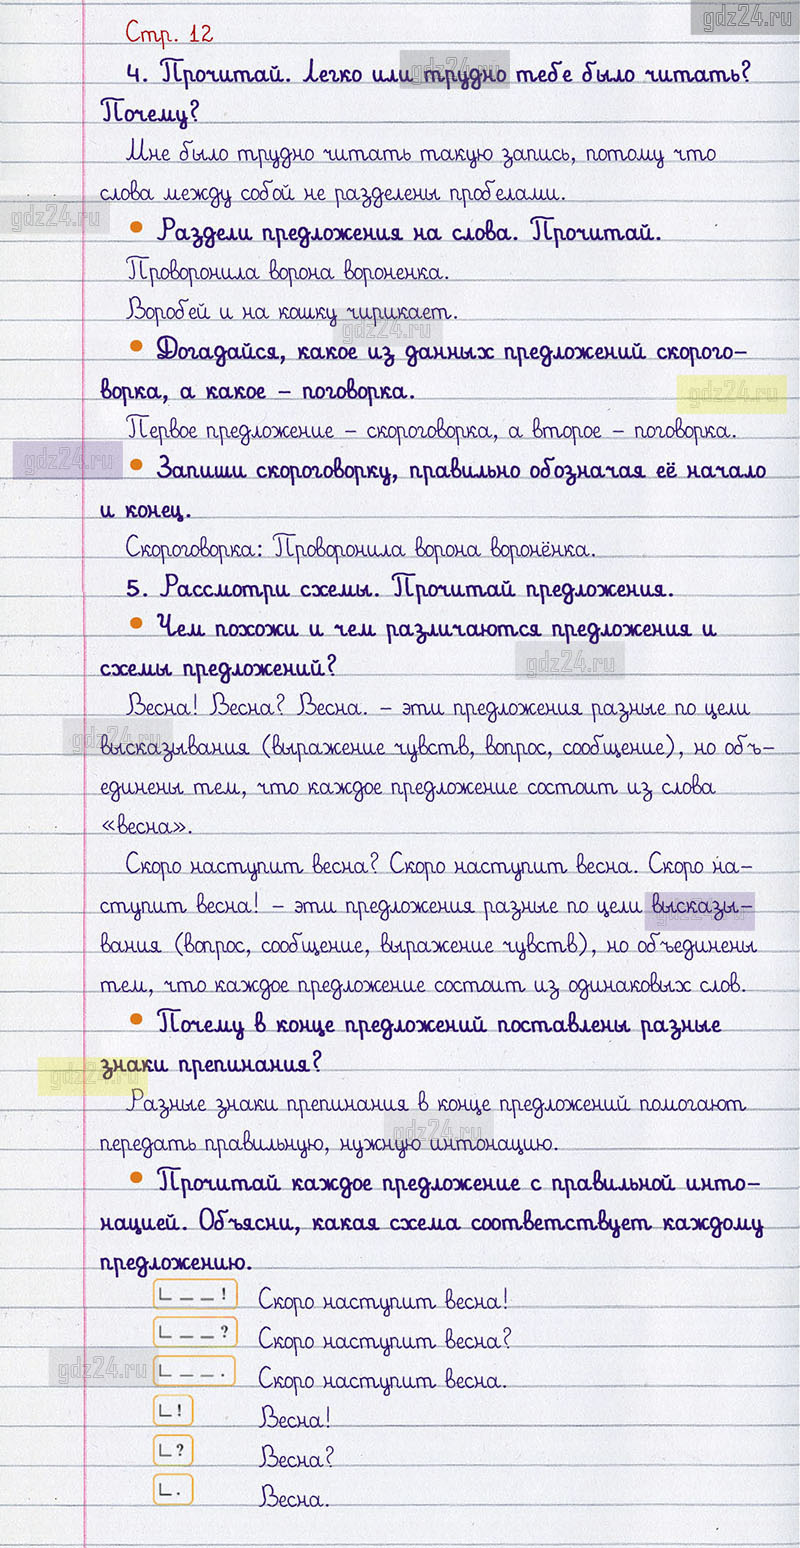 gdz24.ru
Стр. 12
4. Прочитай. Легко или трудно тебе было читать?
gdz24.ru
Почему?
Мне было трудно читать такую запись, потому что
слова между собой не разделены пробелами.
gdz24.ru
Раздели предложения на слова. Прочитай.
Проворонила ворона вороненка.
Воробей и на кошку чирикает.
gdz24.ru
Догадайся, какое из данных предложений скорого-
ворка, а какое – поговорка.
gdz24.ru
Первое предложение – скороговорка, а второе – поговорка.
gdz24.ru
Запиши скороговорку, правильно обозначая её начало
и конец.
Скороговорка: Проворонила ворона воронёнка.
5. Рассмотри схемы. Прочитай предложения.
Чем похожи и чем различаются предложения и
схемы предложений?
gdz24.ru
Весна! Весна? Весна. – эти предложения разные по цели
gdz24.ru
высказывания (выражение чувств, вопрос, сообщение), но объ-
единены тем, что каждое предложение состоит из слова
«весна».
Скоро наступит весна? Скоро наступит весна. Скоро на-
ступит весна! – эти предложения разные по цели высказы-
gdz24.ru
вания (вопрос, сообщение, выражение чувств), но объединены
тем, что каждое предложение состоит из одинаковых слов.
Почему в конце предложений поставлены разные
знаки препинания?
gdz24.ru
Разные знаки препинания в конце предложений помогают
gdz24.ru
передать правильную, нужную интонацию.
Прочитай каждое предложение с правильной инто-
нацией. Объясни, какая схема соответствует каждому
предложению.
! Скоро наступит весна!
? Скоро наступит весна?
gdz24.ru
. Скоро наступит весна.
! Весна!
? Весна?
. Весна.